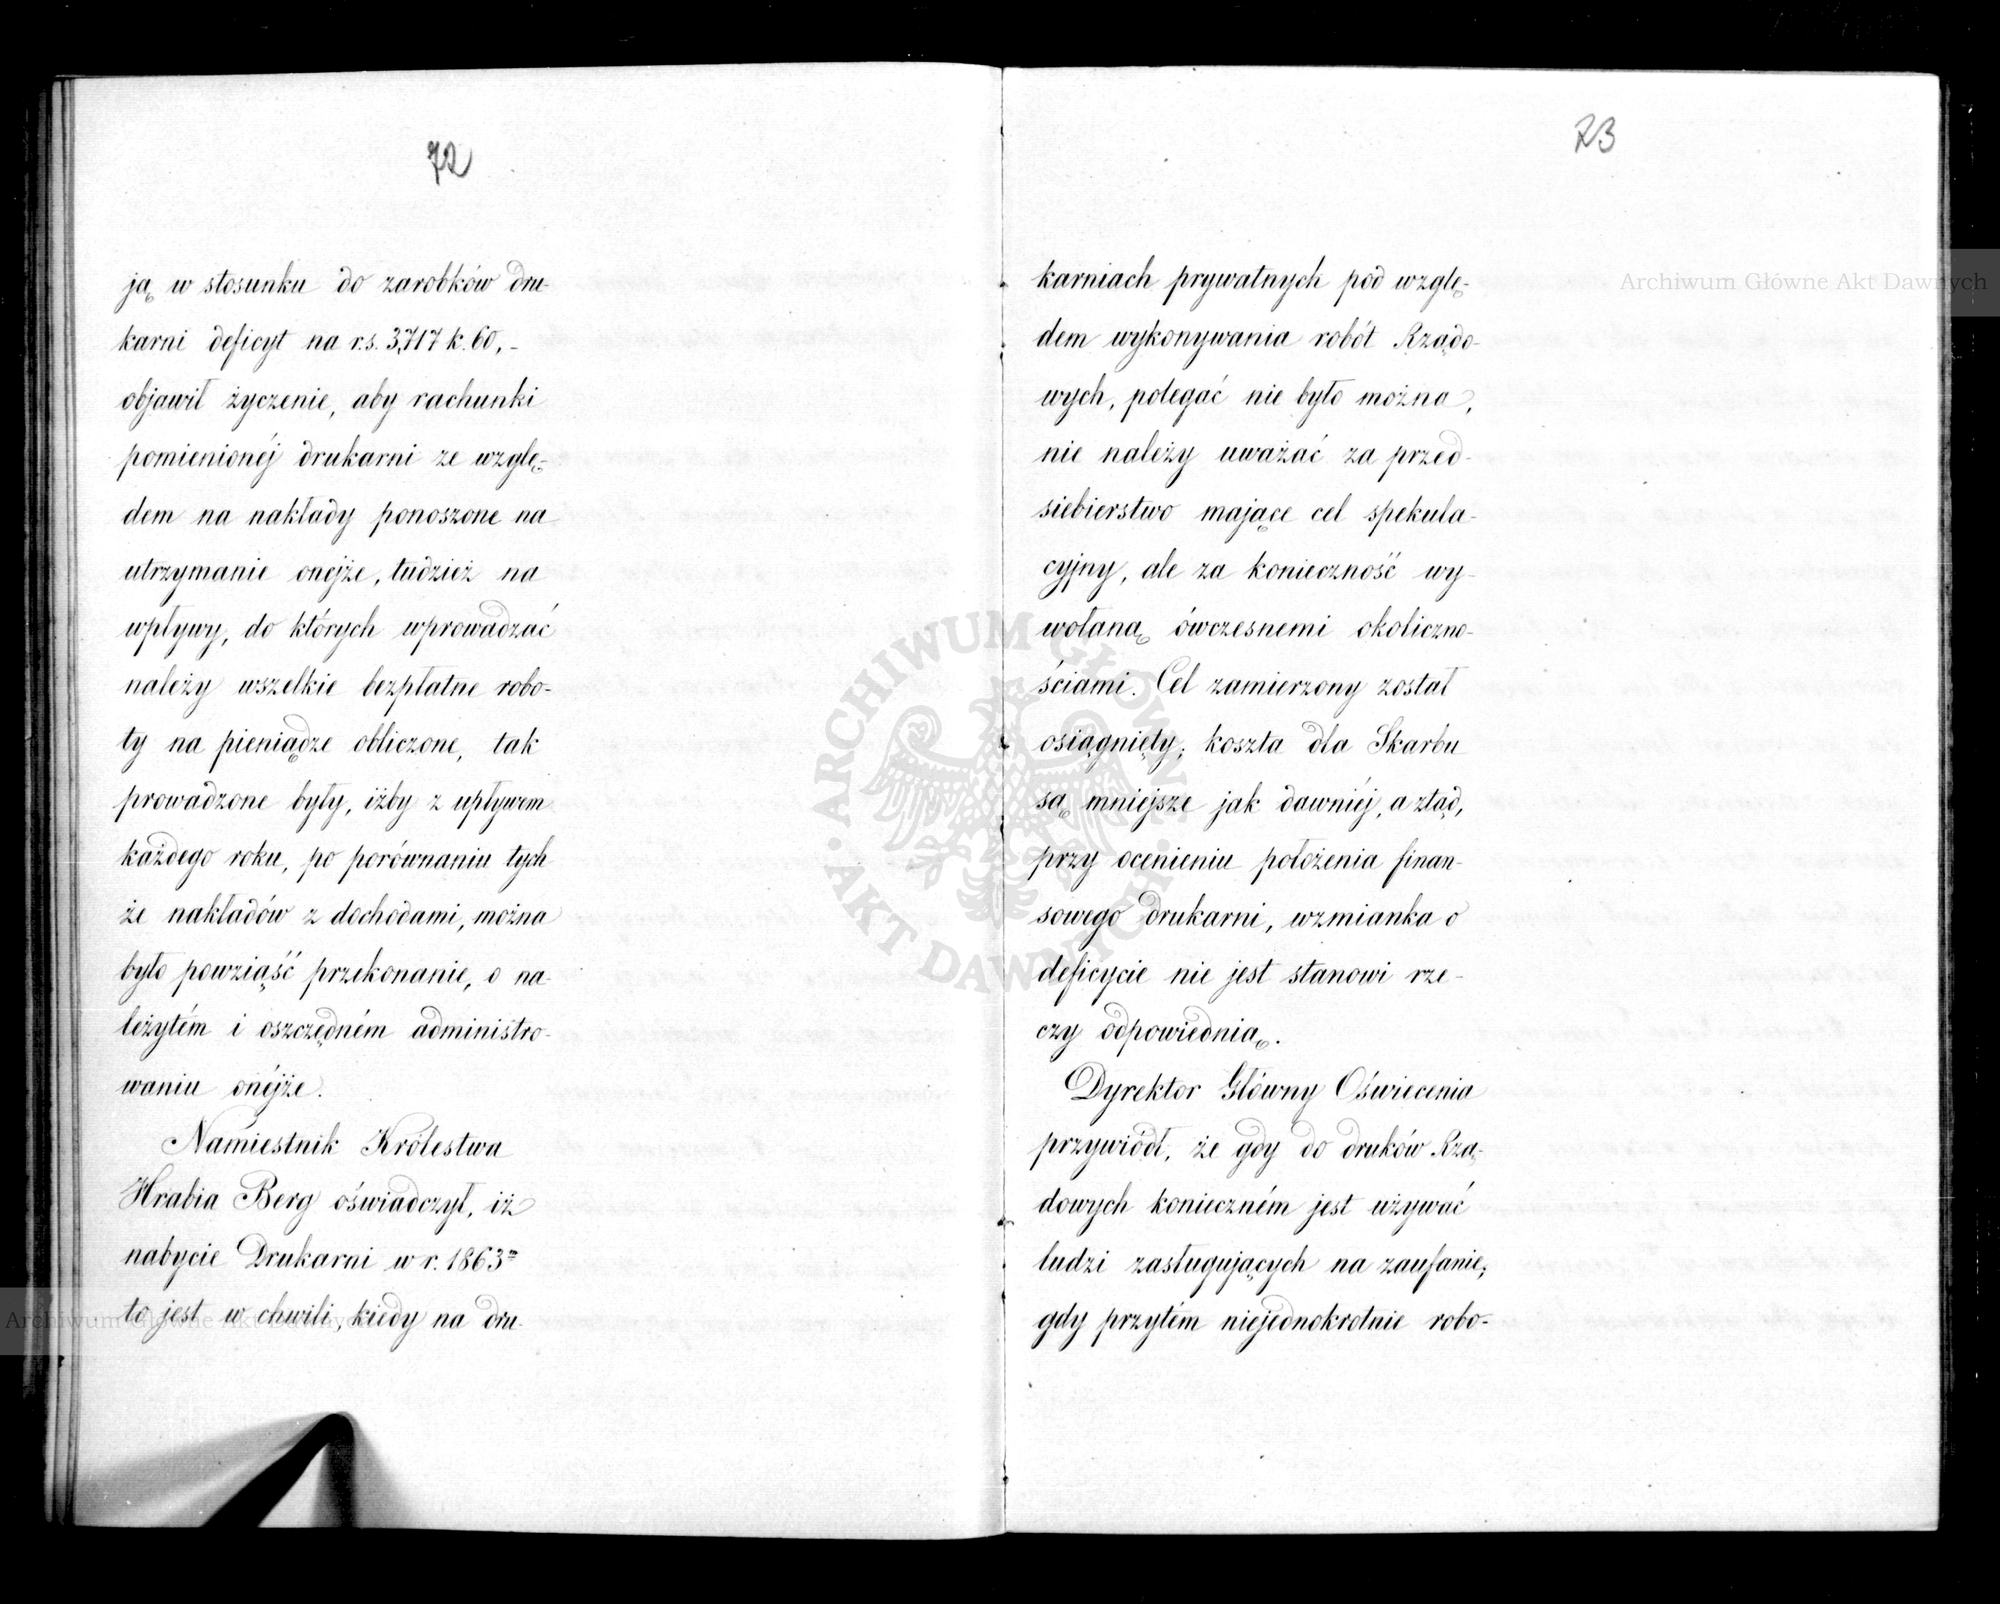 72
ją w stosunku do zarobków dru-
karni deficyt na r.s. 3,717 k. 60, -
objawił życzenie, aby rachunki
pomienionéj drukarni ze wzglę-
dem na nakłady ponoszone na
utrzymanie onejże, tudzież na
wpływy, do których wprowadzać
należy wszelkie bezpłatne robo-
ty na pieniądze obliczone, tak
prowadzone były, iżby z upływem
każdego roku, po porównaniu tych
że nakładów z dochodami, można
było powziąść przekonanie, o na-
leżytém i oszczędném administro-
waniu onéjże.
Namiestnik Królestwa
Hrabia Berg oświadczył, iż
nabycie Drukarni w r. 1863m
to jest w chwili, kiedy na dru-
73
karniach prywatnych pod wzglę-
dem wykonywania robót Rządo-
wych, polegać nie było można,
nie należy uważać za przed-
siebierstwo mające cel spekula-
cyjny, ale za konieczność wy-
wołaną ówczesnemi okoliczno-
ściami. Cel zamierzony został
osiągnięty; koszta dla Skarbu
są mniejsze jak dawniéj, a ztąd,
przy ocenieniu położenia finan-
sowego drukarni, wzmianka o
deficycie nie jest stanowi rze-
czy odpowiednią.
Dyrektor Główny Oświecenia
przywiódł, że gdy do druków Rzą-
dowych konieczném jest używać
ludzi zasługujących na zaufanie;
gdy przytém niejednokrotnie robo-
Archiwum Główne Akt Dawnych
Archiwum Główne Akt Dawnych
ARCHIWUM GŁÓWNE
AKT DAWNYCH